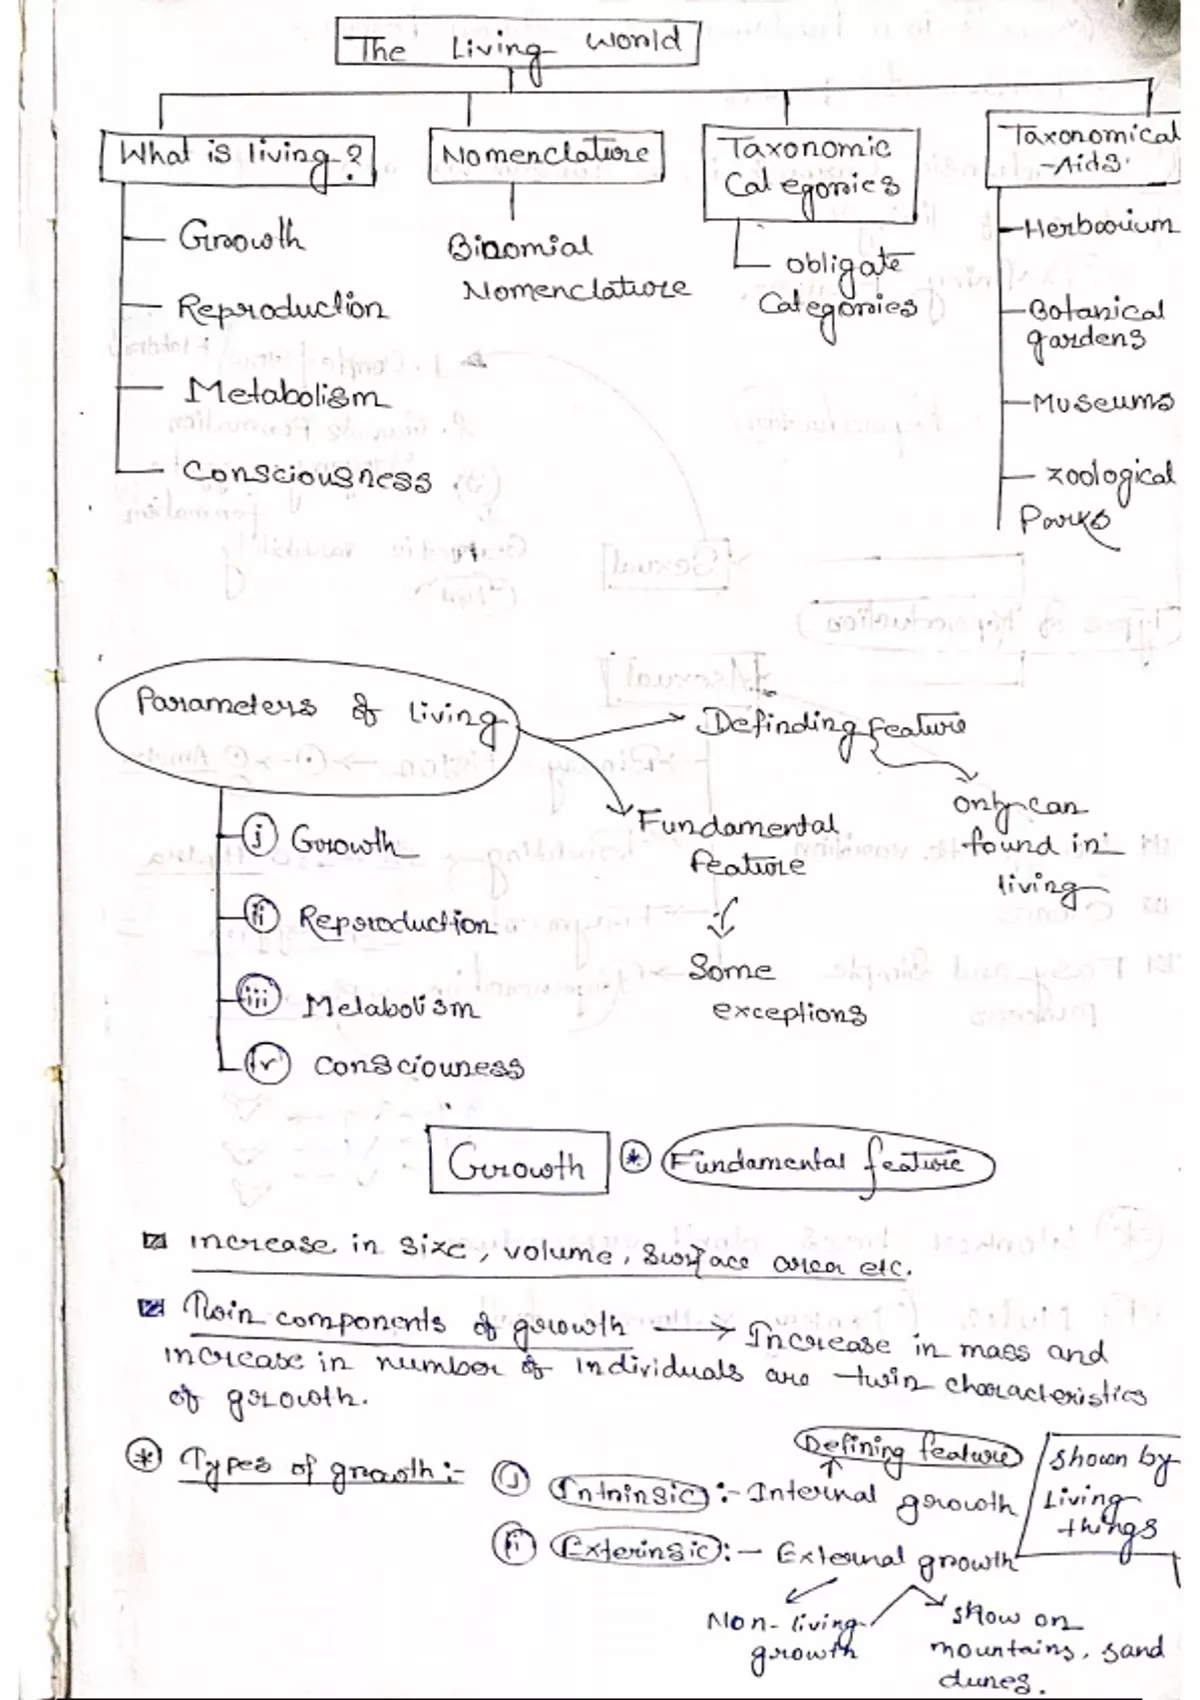 The Living World
What is living?
Growth
Reproduction
Metabolism
Consciousness
Nomenclature
Binomial
Nomenclature
Taxonomic
Categories
obligate
Categories
Taxonomical
-Aids
Herbarium
Botanical
gardens
Museums
zoological
Parks
Parameters of living
i Growth
ii Reproduction
iii Metabolism
iv Consciouness
Definding feature
only can
found in
living
Fundamental
feature
Some
exceptions
Growth * Fundamental feature
increase in size, volume, surface area etc.
Twin components of growth → Increase in mass and
increase in number of individuals are twin characteristics
of growth.
* Types of growth :-
Defining feature
i Intrinsic :- Internal growth
shown by
Living
things
ii Exterinsic :- External growth
Non-living
growth
show on
mountains, sand
dunes.